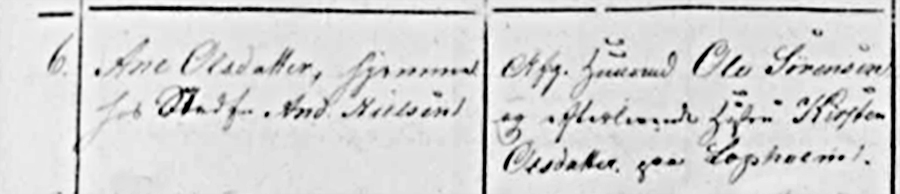 6.
Ane Olsdatter, hjemme
hos Stedfa. And. Nielsen
Afg. Huusmd Ole Sörensen
og efterlevende Hustru Kirsten
Olsdatter paa